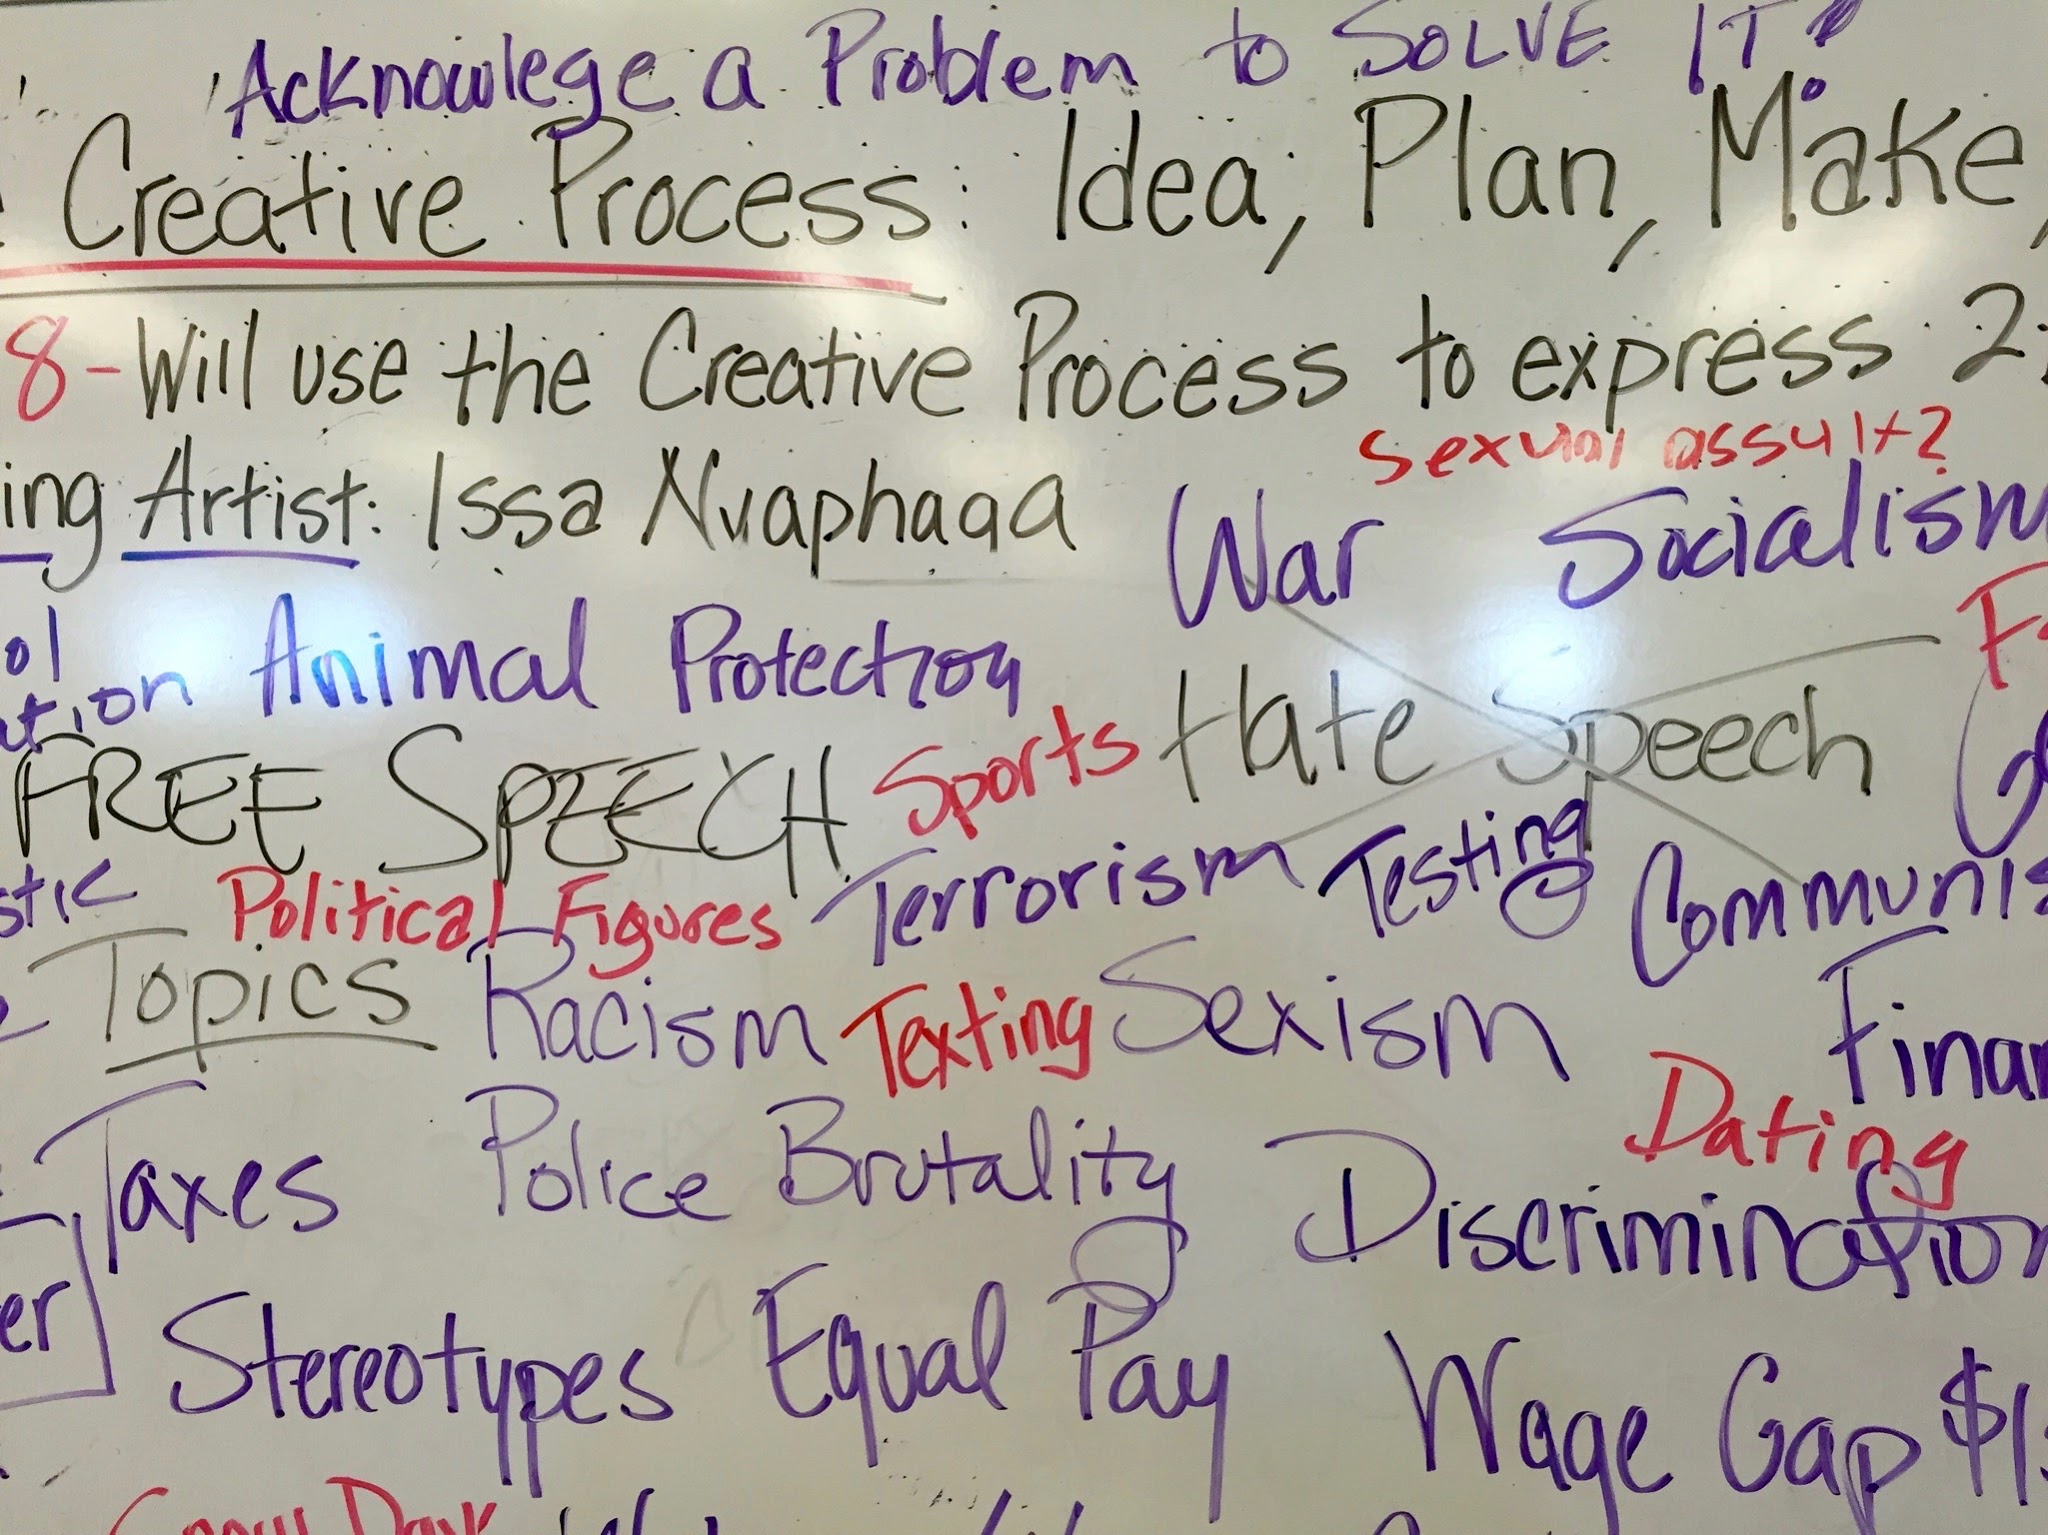 Acknowlege a Problem to SOLVE IT?
Creative Process: Idea, Plan, Make,
8-Will use the Creative Process to express 2
sexual assult?
ing Artist: Issa Nyaphaga War Socialism
ol
ation Animal Protection Hate Speech
FREE SPEECH Sports
stic Political Figures Terrorism Testing Communis
Topics Racism Texting Sexism Finan
Dating
Taxes Police Brutality Discrimination
er Stereotypes Equal Pay Wage Gap $1
Snow Days